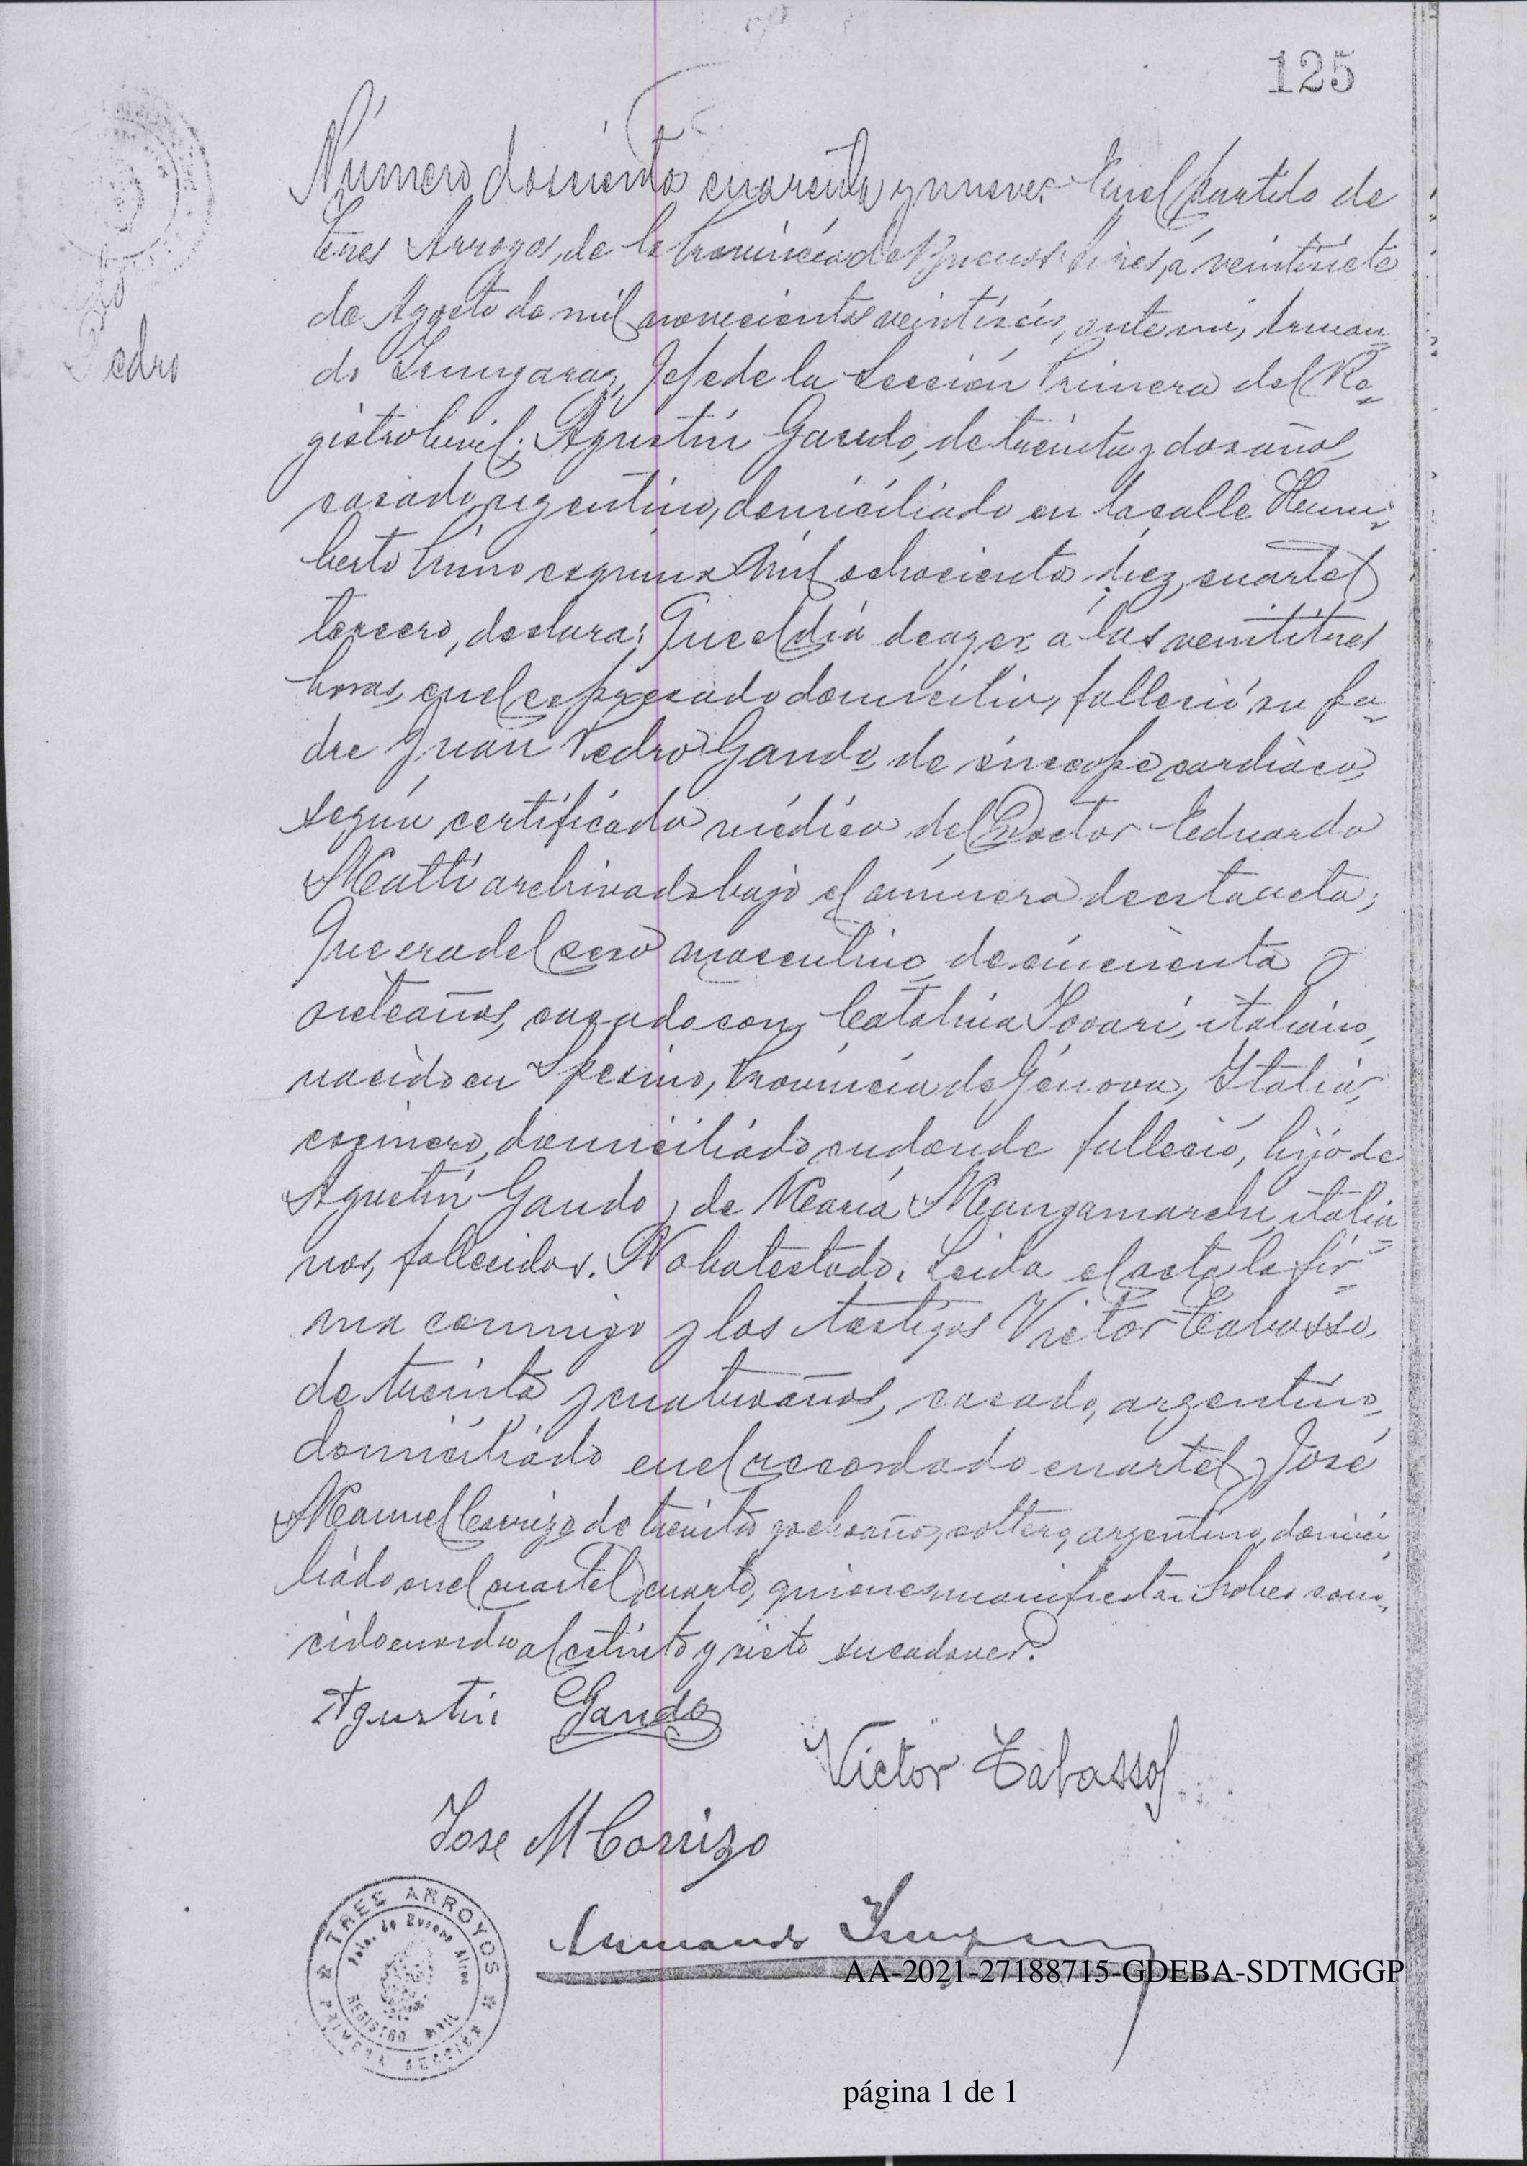 125
Número doscientos cuarenta y nueve. En el Partido de
Tres Arroyos, de la Provincia de Buenos Aires, á veintisiete
de Agosto de mil novecientos veintiséis, ante mi, Arman-
do Jefe de la Sección Primera del Re-
gistro Civil; Agustín Gando, de treinta y dos años,
casado, argentino, domiciliado en la calle Hum-
berto Primo esquina Mil ochocientos diez, cuartel
tercero, declara: Que el día de ayer, a las veintitres
horas, en el expresado domicilio, falleció su pa-
dre Juan Pedro Gando, de síncope cardíaco,
según certificado médico del Doctor Eduardo
Matti archivado bajo el número de esta acta;
Que era del sexo masculino, de cincuenta y
siete años, casado con Catalina italiano,
nacido en Provincia de Génova, Italia,
cocinero, domiciliado en donde falleció, hijo de
Agustín Gando y de María italia-
nos, fallecidos. No ha testado. Leida el acta la fir-
ma conmigo y los testigos Victor Tabasso,
de treinta y cuatro años, casado, argentino,
domiciliado en el recordado cuartel y José
Manuel Corrizo de treinta y ocho años, soltero, argentino, domici-
liado en el cuartel cuarto, quienes manifiestan haber cono-
cido en vida al extinto y visto su cadaver.
Agustin Gando
Victor Tabasso
Jose M Corrizo
Armando
TRES ARROYOS
Pcia. de Buenos Aires
REGISTRO CIVIL
PRIMERA SECCION
AA-2021-27188715-GDEBA-SDTMGGP
página 1 de 1
Pedro